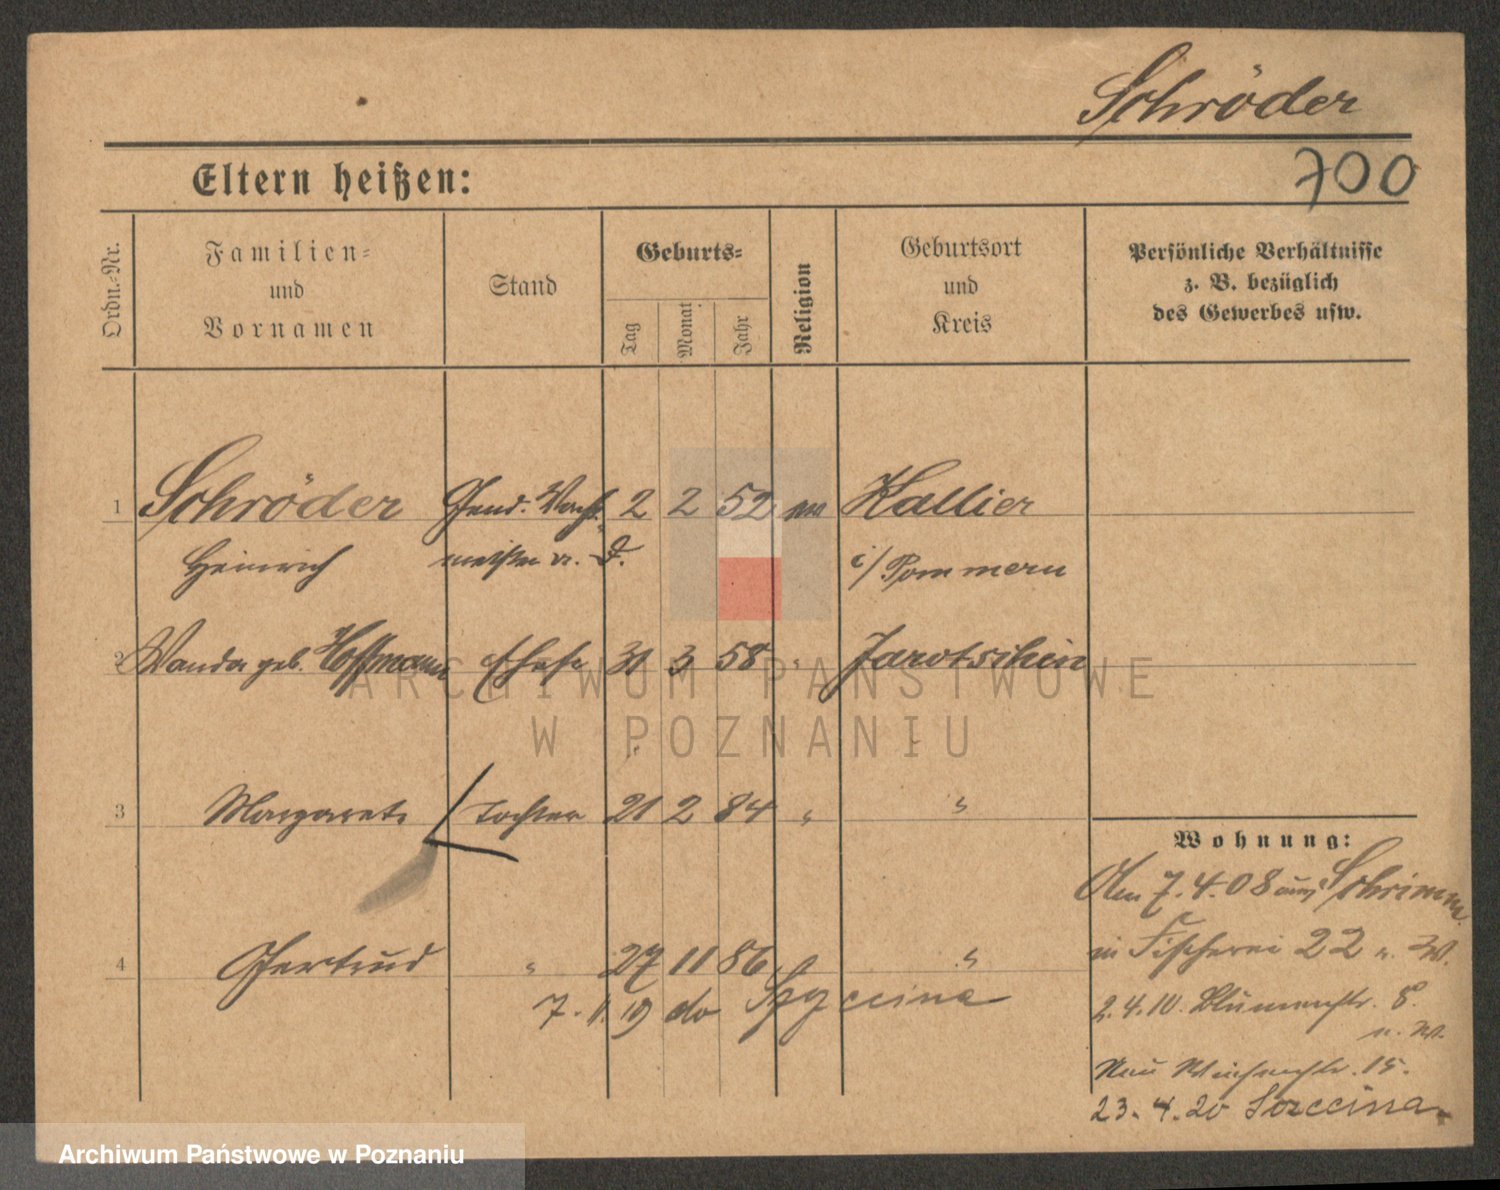 Schröder
700
Eltern heißen:
Ordn.-Nr.
Familien-
und
Vornamen
Stand
Geburts-
Tag
Monat
Jahr
Religion
Geburtsort
und
Kreis
Persönliche Verhältnisse
z. B. bezüglich
des Gewerbes usw.
1 Schröder Gend. Wacht 2 2 52 Kallier
Heinrich meister a. D. i/ Pommern
2 Wanda geb. Hoffmann Ehefr 31 3 58 " Jarotschin
3 Margarete Tochter 21 2 84 " "
Wohnung:
4 Gertrud " 27 11 86 "
7. 1. 19 do
Am 7.4.08 aus Schrimm
in Fischerei 22 b. W.
2.4.10. Blumenstr. 8.
b. W.
15.
23. 4. 20
ARCHIWUM PAŃSTWOWE
W POZNANIU
Archiwum Państwowe w Poznaniu